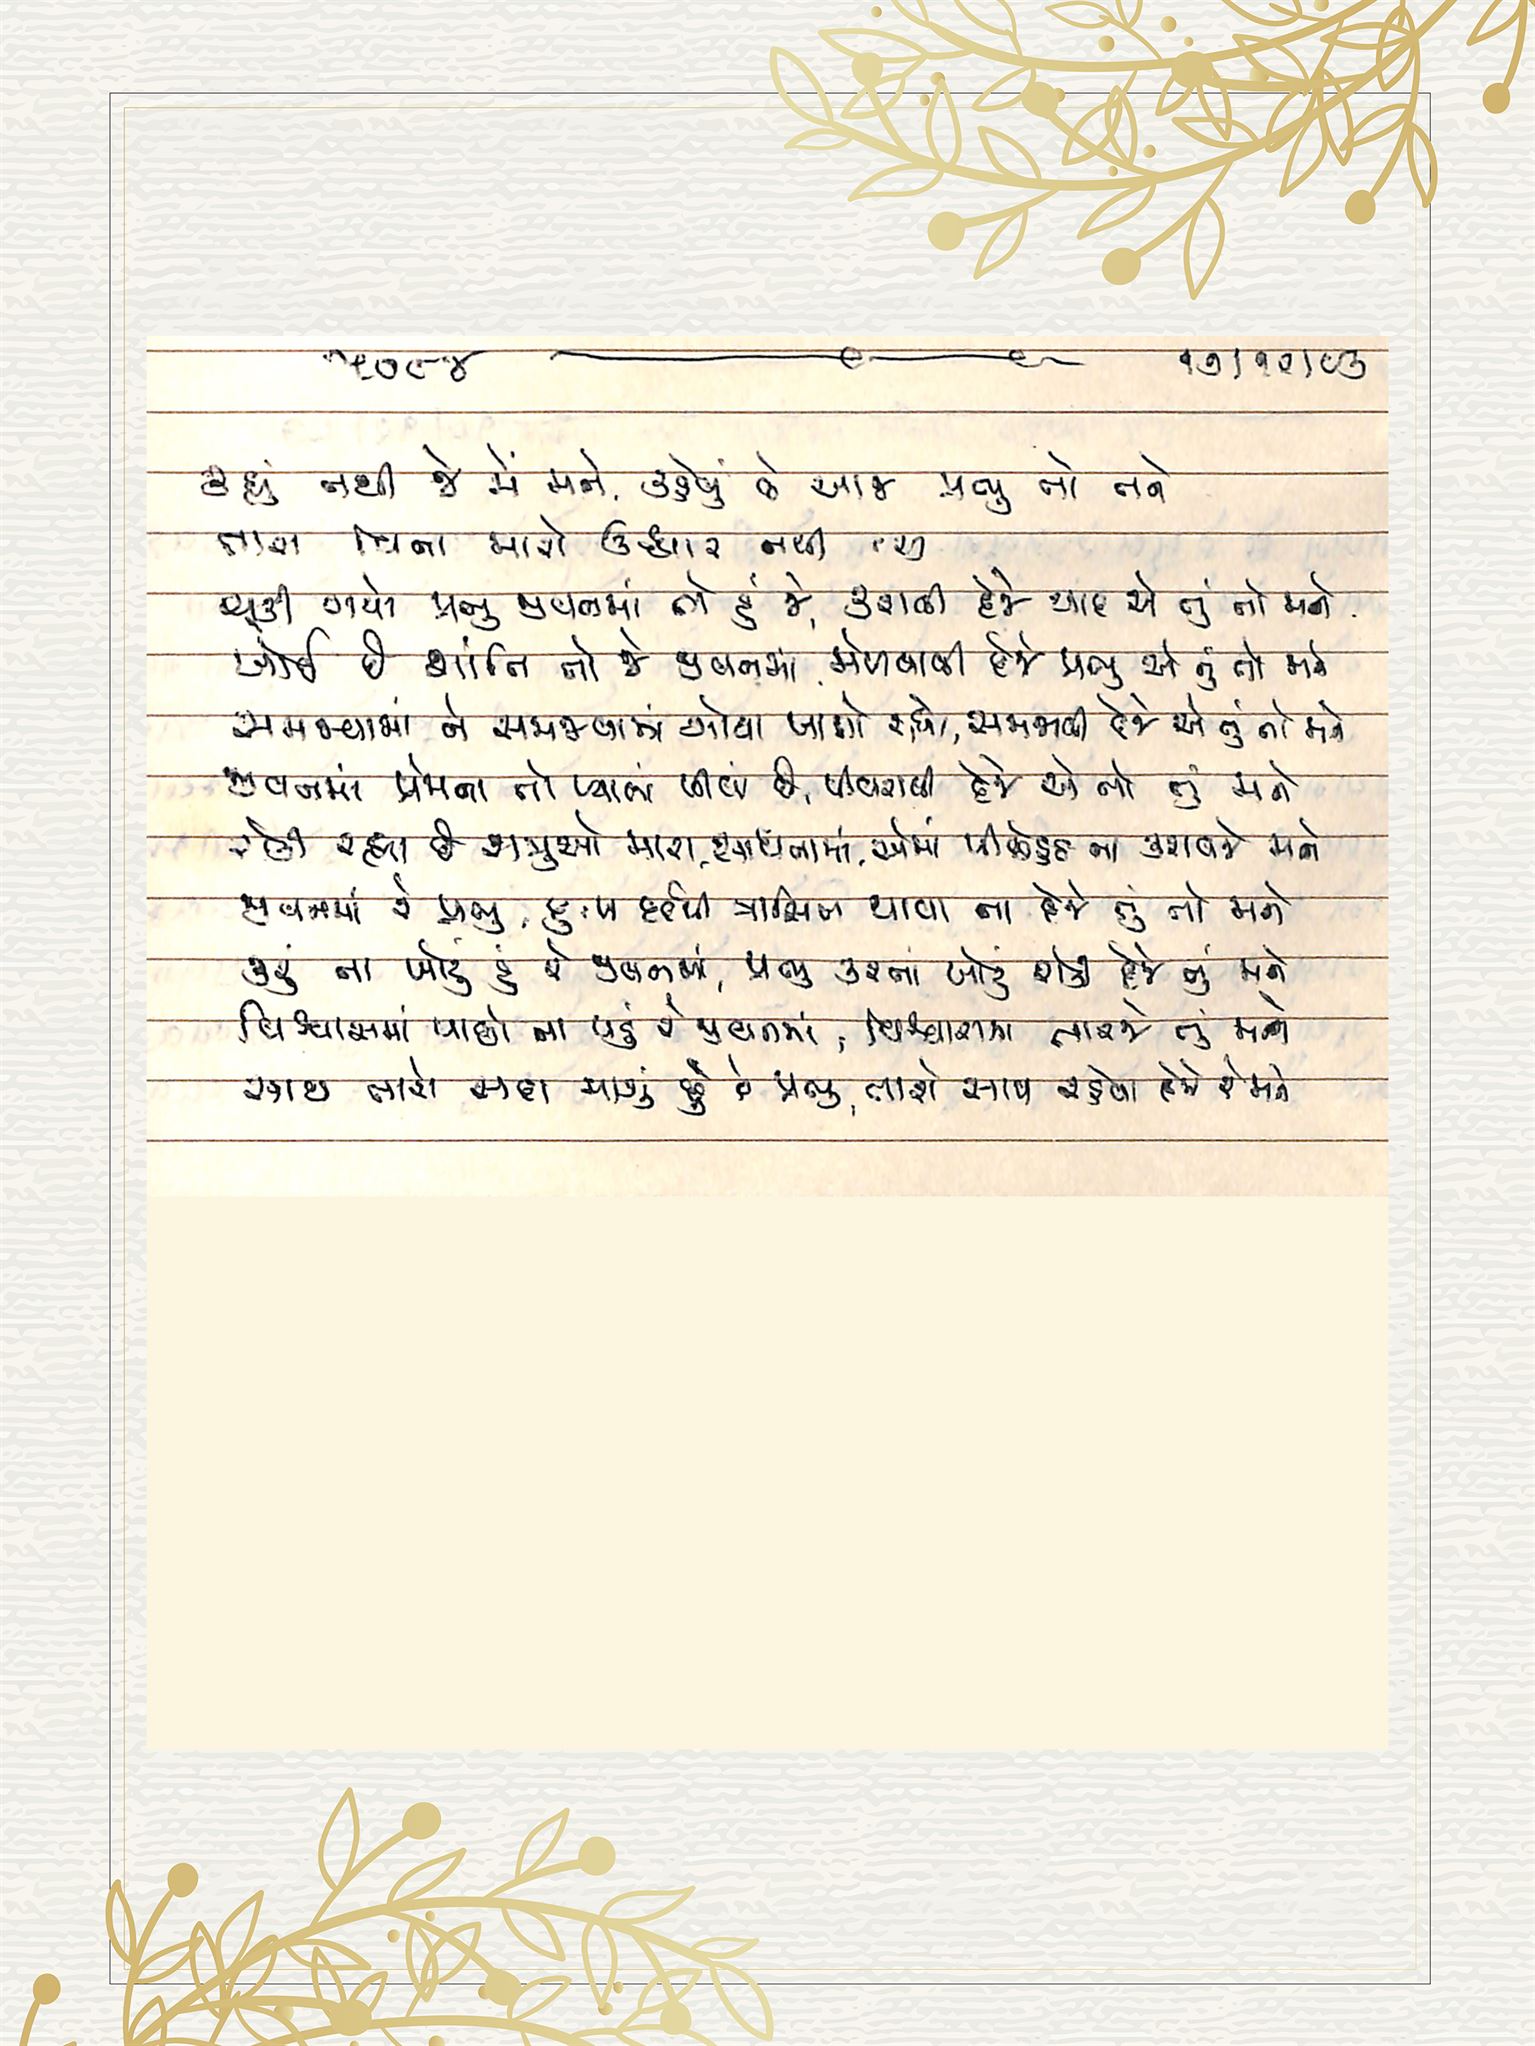 ૫૦૯૪ ૧૭/૧૨/૯૩
કહ્યું નથી જે મેં મને, કહેવું છે આજ પ્રભુ તો તને
તારા વિના મારો ઉદ્ધાર નથી
ચૂકી ગયો પ્રભુ જીવનમાં તો હું જે, કરાવી દેજે યાદ એ તું તો મને
ખોઈ છે શાંતિ તો જે જીવનમાં, મેળવાવી દેજે પ્રભુ એ તું તો મને
સમજ્યામાં ને સમજવામાં ગોથા ખાતો રહ્યો, સમજાવી દેજે એ તું તો મને
જીવનમાં પ્રેમના તો પ્યાલાં પીવાં છે, પીવરાવી દેજે એ તો તું મને
રહી રહ્યા છે શત્રુઓ મારા, સાધનામાં, એમાં પીછેહઠ ના કરાવજે મને
જીવનમાં રે પ્રભુ, દુઃખ દર્દથી ત્રાસિત થાવા ના દેજે તું તો મને
કરું ના ખોટું હું રે જીવનમાં, પ્રભુ કરતાં ખોટું રોકી દેજે તું મને
વિશ્વાસમાં પાછો ના પડું રે જીવનમાં, વિશ્વાસમાં તારજે તું મને
સાથ તારો સદા માગું છું રે પ્રભુ, તારો સાથ રહેવા દેજે રે મને